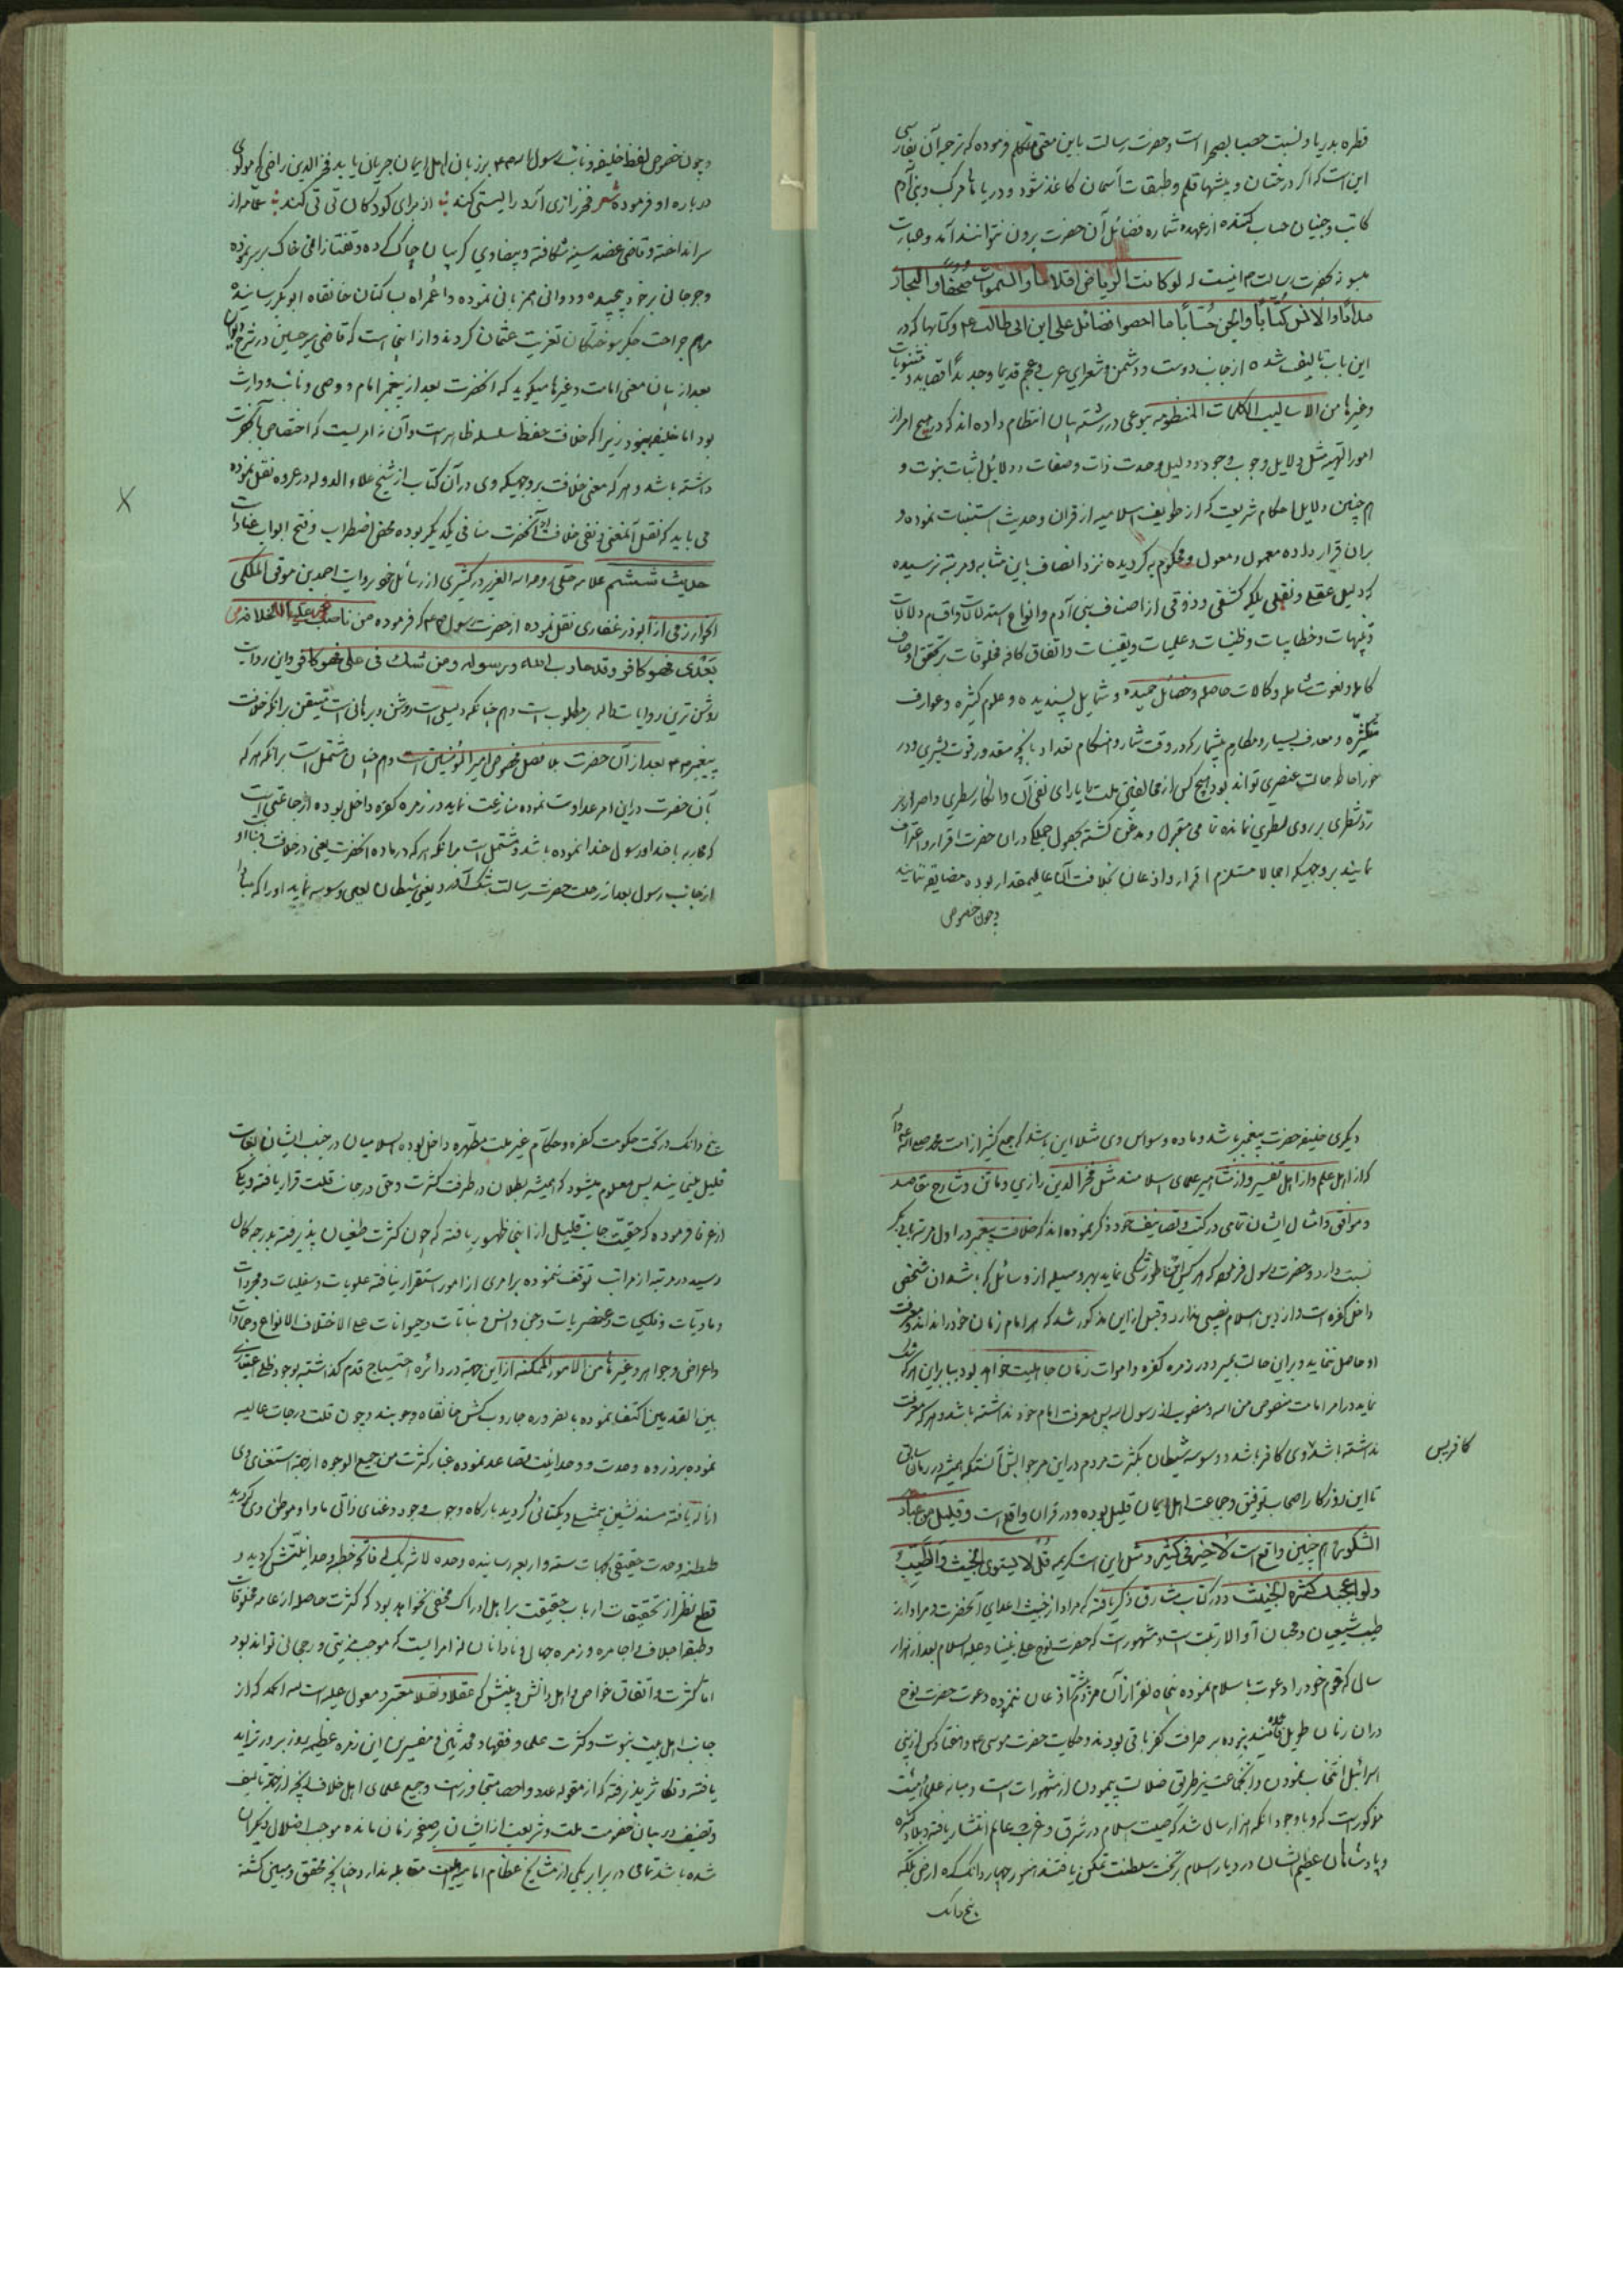 قطره بدریا و نسبت حصبا بصحرا است و حضرت رسالت باین معنی تکلم فرموده که ترجمه آن بفارسی
این است که اگر درختان و بیشها قلم و طبقات آسمان کاغذ شود و دریاها مرکب و بنی آدم
کاتب و جنیان حساب کننده از عهده شماره فضائل آن حضرت برون نتوانند آمد و عبارت
حضرت رسالت م اینست لو کانت الریاض اقلاما والسموات صحفا والبحار
مدادا والانس کتابا والجن حسابا ما احصوا فضائل علی ابن ابی طالب ع و کتابها که در
این باب تالیف شده از جانب دوست و دشمن و شعرای عرب و عجم قدیما و جدیدا قصاید و مثنویات
وغیرها من الاسالیب الکلمات المنظومه بنوعی در رشته بیان انتظام داده اند که در هیچ امر از
امور الهیه مثل دلایل وجوب وجود و دلیل وحدت ذات و صفات و دلائل اثبات نبوت و
هم چنین دلایل احکام شریعت که از طوایف اسلامیه از قران و حدیث استنباط نموده و
بران قرار داده معمول و معول و محکوم به گردیده نزد انصاف باین مثابه و مرتبه نرسیده
که دلیل عقلی و نقلی بلکه کشفی و ذوقی از اصناف بنی آدم و انواع استدلالات و اقسام دلالات
و تنبیهات و خطابیات و ظنیات و علمیات و یقینیات و اتفاق کافه مخلوقات بر تحقق اوصاف
کامله و نعوت شامله و کمالات حاصله و خصائل حمیده و شمایل پسندیده و علوم کثیره و عوارف
متکثره و معارف بسیار و مکارم بیشمار که در وقت شمار و هنکام تعداد بانچه مقدور قوت بشری و در
خور احاطه حالت عنصری تواند بود هیچ کس از مخالفین ملت را یارای نفی آن و انکار سطری و اصرار بر
رد شطری بر روی سطری نمانده تمامی مقبول و مذعن گشته بحصول جملگی دران حضرت اقرار و اعتراف
نمایند بر وجهیکه اجمالا مستلزم اقرار و اذعان بخلافت آن عالیمقدار بوده مضایقه ننمایند
وچون خصوص
وچون خصوص لفظ خلیفه و نائب رسول الله ص بر زبان اهل ایمان جریان یابد فخرالدین رازی که مولوی
درباره او فرموده شعر فخر رازی آرد را لیستی کند از برای کودکان تی تی کند عمامه از
سر انداخته و قاضی عضد سینه شکافته و بیضاوی گریبان چاک کرده و تفتازانی خاک بر سر نموده
و جرجانی بر خود پیچیده و دوانی همزبانی نموده و اعراه بساکنان خانقاه ابوبکر رسانیده
مرهم جراحت جگر سوختگان تعزیت عثمان گردند و از اینجا است که قاضی میر حسین در شرح دیوان
بعد از بیان معنی امامت و غیرها میگوید که آنحضرت بعد از پیغمبر امام و وصی و نائب و وارث
بود اما خلیفه نبود زیرا که خلافت حفظ سلسله ظاهر است و آن نه امریست که اختصاص بآنحضرت
داشته باشد و هر که معنی خلافت بر وجهیکه وی در آن کتاب از شیخ علاء الدوله در عروه نقل نموده
می یابد که نقل آنمعنی و نفی خلافت از آنحضرت منافی یکدیگر بوده محض اضطراب و فتح ابواب عنادات
حدیث ششم علامه حلی روح الله العزیز در کثیری از رسائل خود بروایت احمد بن موفق المکی
الخوارزمی از ابوذر غفاری نقل نموده از حضرت رسول ص که فرموده من ناصب علیا الخلافة
بعدی فهو کافر وقد حارب الله ورسوله ومن شک فی علی فهو کافر و این روایت
روشن ترین روایات داله بر مطلوب است و هم چنانکه دلیلی است روشن و برهانی است متیقن برانکه خلافت
پیغمبر ص بعد از آن حضرت بلا فصل مخصوص امیر المؤمنین است و هم چنان مشتمل است برانکه هر که
بآن حضرت دراین امر عداوت نموده منازعت نماید در زمره کفره داخل بوده از جماعتی است
که محاربه با خدا و رسول خدا نموده باشد و مشتمل است برانکه هر که در ماده آنحضرت یعنی در خلافت و نیابت او
از جانب رسول بعد از رحلت حضرت رسالت شک آورد یعنی شیطان لعین وسوسه نماید او را که
دیگری خلیفه حضرت پیغمبر باشد و ماده وسواس وی مثلا این باشد که جمع کثیر از امت محمد صلی الله علیه وآله
که از اهل علم و از اهل تفسیر و از مشاهیر علمای اسلامند مثل فخرالدین رازی و ماتن و شارح مقاصد
و مواقف و امثال ایشان تمامی در کتب و تصانیف خود ذکر نموده اند که خلافت پیغمبر در اول مرتبه بابی بکر
نسبت دارد و حضرت رسول فرموده که هر کس اینطور شکی نماید بهر وسیله از وسائل که باشد ان شخص
داخل کفره است و از دین اسلام نصیبی ندارد و قبل از این مذکور شد که هر امام زمان خود را نداند و معرفت
او حاصل ننماید و براین حالت بمیرد در زمره کفره و اموات زمان جاهلیت خواهد بود بنابراین هر که شک
نماید در امر امامت منصوص من الله و منصوب از رسول الله پس معرفت امام خود نداشته باشد و هر که معرفت
نداشته باشد وی کافر باشد و وسوسه شیطان بکثرت مردم دراین مر جوابش آنستکه همیشه در زمان سابق
کافر پس
تا این روزکار اصحاب توفیق و جماعت اهل ایمان قلیل بوده و در قران واقع است وقلیل من عبادی
الشکور و هم چنین واقع است لا خیر فی کثیر و مثل این است کریمه قل لا یستوی الخبیث والطیب
ولو اعجبک کثرة الخبیث و در کتاب مشارق ذکر یافته که مراد از خبیث اعدای آنحضرت و مراد از
طیب شیعیان و محبان آن والا رتبت است و مشهور است که حضرت نوح علی نبینا وعلیه السلام بعد از هزار
سال که قوم خود را دعوت باسلام نموده پنجاه نفر از آن مردم اذعان ننموده دعوت حضرت نوح
دران زمان طویل بر صرافت کفر باقی بودند و حکایت حضرت موسی ع و هفتاد کس از بنی
اسرائیل انتخاب نمودن و انجماعت نیز طریق ضلالت پیمودن از مشهورات است و میانه علمای هیئت
مذکور است که و با وجود انکه هزار سال شد که صیت اسلام در شرق و غرب عالم انتشار یافته و بلاد کثیره
و پادشاهان عظیم الشان در دیار اسلام بر تخت سلطنت تمکن یافتند هنوز چهار دانک کره ارض بلکه
پنج دانک
پنج دانک در تحت حکومت کفره و حکام غیر ملت مطهره داخل بوده اسلامیان در جنب ایشان بغایت
قلیل مینمایند پس معلوم میشود که همیشه بطلان در طرف کثرت و حق در جانب قلت قرار یافته و یکی
از عرفا فرموده که حقیت جانب قلیل از اینجا ظهور یافته که چون کثرت طغیان پذیرفته بدرجه کمال
رسید در مرتبه از مراتب توقف ننموده بر امری از امور استقرار نیافته علویات و سفلیات و مجردات
و مادیات و فلکیات و عنصریات و جن و انس و نباتات و حیوانات علی الاختلاف الانواع و جمادات
و اعراض و جواهر و غیرها من الامور الممکنه از این جهته در دائره احتیاج قدم گذاشته بوجود ظلی
بین العدمین اکتفا نموده بالضروره جاروب کش خانقاه وجوبند و چون قلت درجات عالیه
نموده بر ذروه وحدت و وحدانیت تصاعد نموده غبار کثرت من جمیع الوجوه از جبهة استغنای وی
ازاله یافته مسند نشین بیمثلی و یکتائی گردید بارگاه وجوب وجود و غنای ذاتی ماوا و موطن وی گردید
طنطنه وحدت حقیقی بجهات سته و اربعه رسانیده وحده لا شریک له فاتحه خطبه وحدانیتش گردید و
قطع نظر از تحقیقات ارباب حقیقت بر اهل ادراک مخفی نخواهد بود که کثرت حاصل از عامه مخلوقات
و طبقه اجلاف و اجامره و زمره جهال و نادانان نه امرایست که موجب مزیتی و رجحان تواند بود
اما کثرت و اتفاق خواص و اهل دانش و بینش که عقلا و نقلا معتبر و معول علیه است لله الحمد که از
جانب اهل بیت نبوت و کثرت علما و فقها و محدثین و مفسرین این زمره عظیمه روز بروز تزاید
یافته و تکاثر پذیرفته که از مقوله عدد و احصا متجاوز است و جمیع علمای اهل خلاف آنچه از جهة تالیف
و تصنیف در بیان خصومت ملت و شریعت از ایشان بر صفحه زمان مانده موجب اضلال دیگران
شده باشد تمامی در برابر یکی از مشایخ عظام امامیه مقابله ندارد چنانچه محقق و مبین گشته